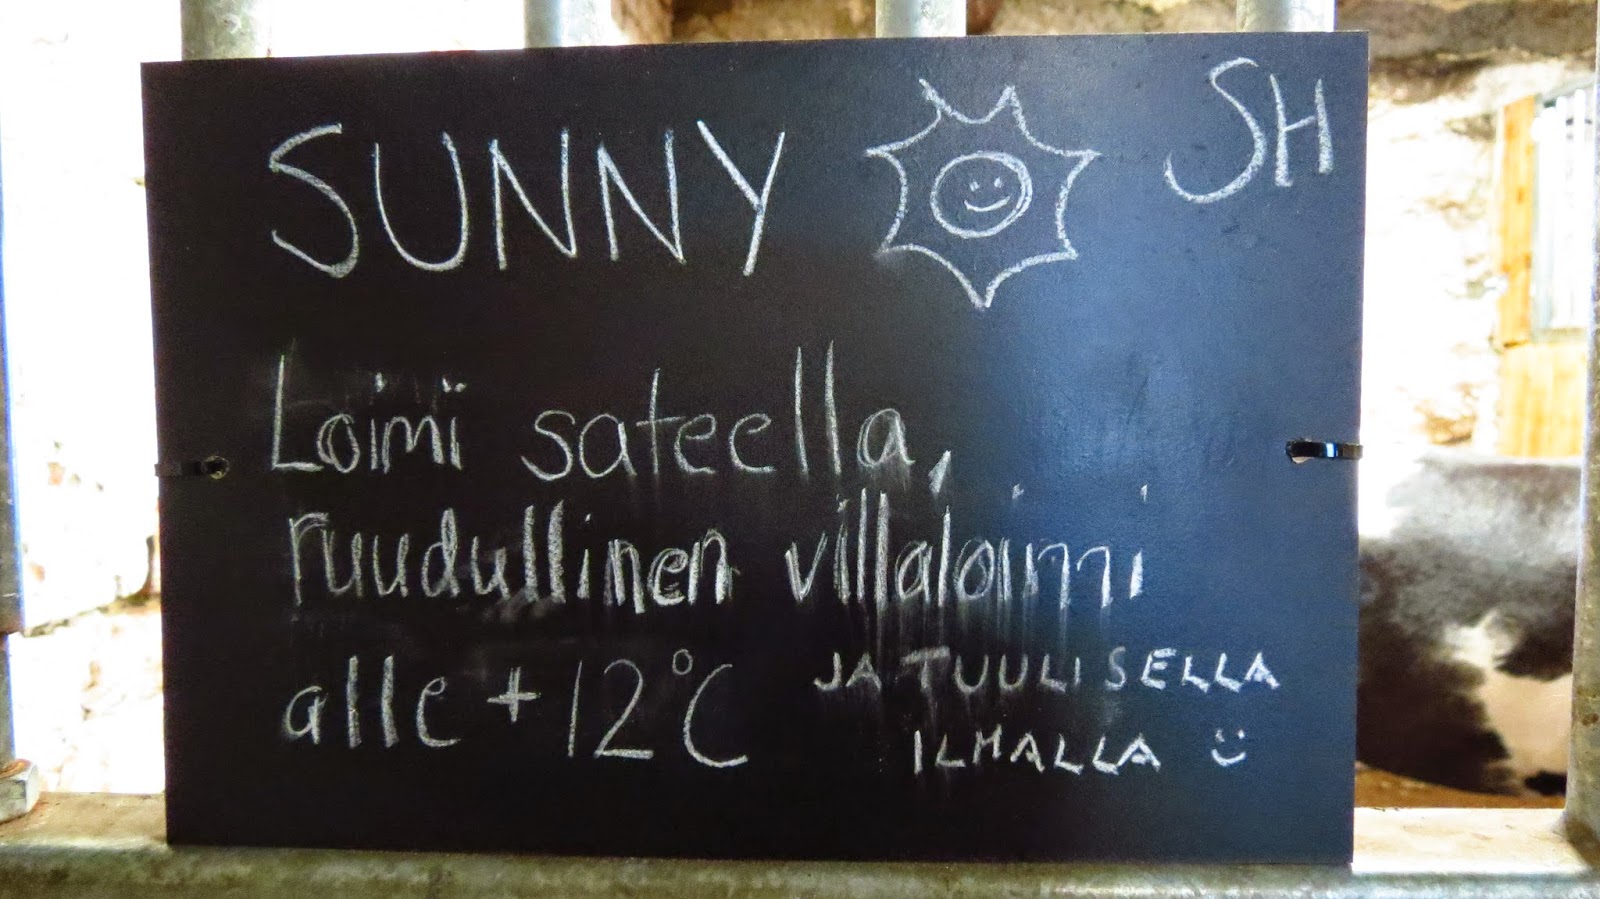 SUNNY SH
Loimi sateella,
ruudullinen villaloimi
alle +12°C JA TUULISELLA
ILMALLA